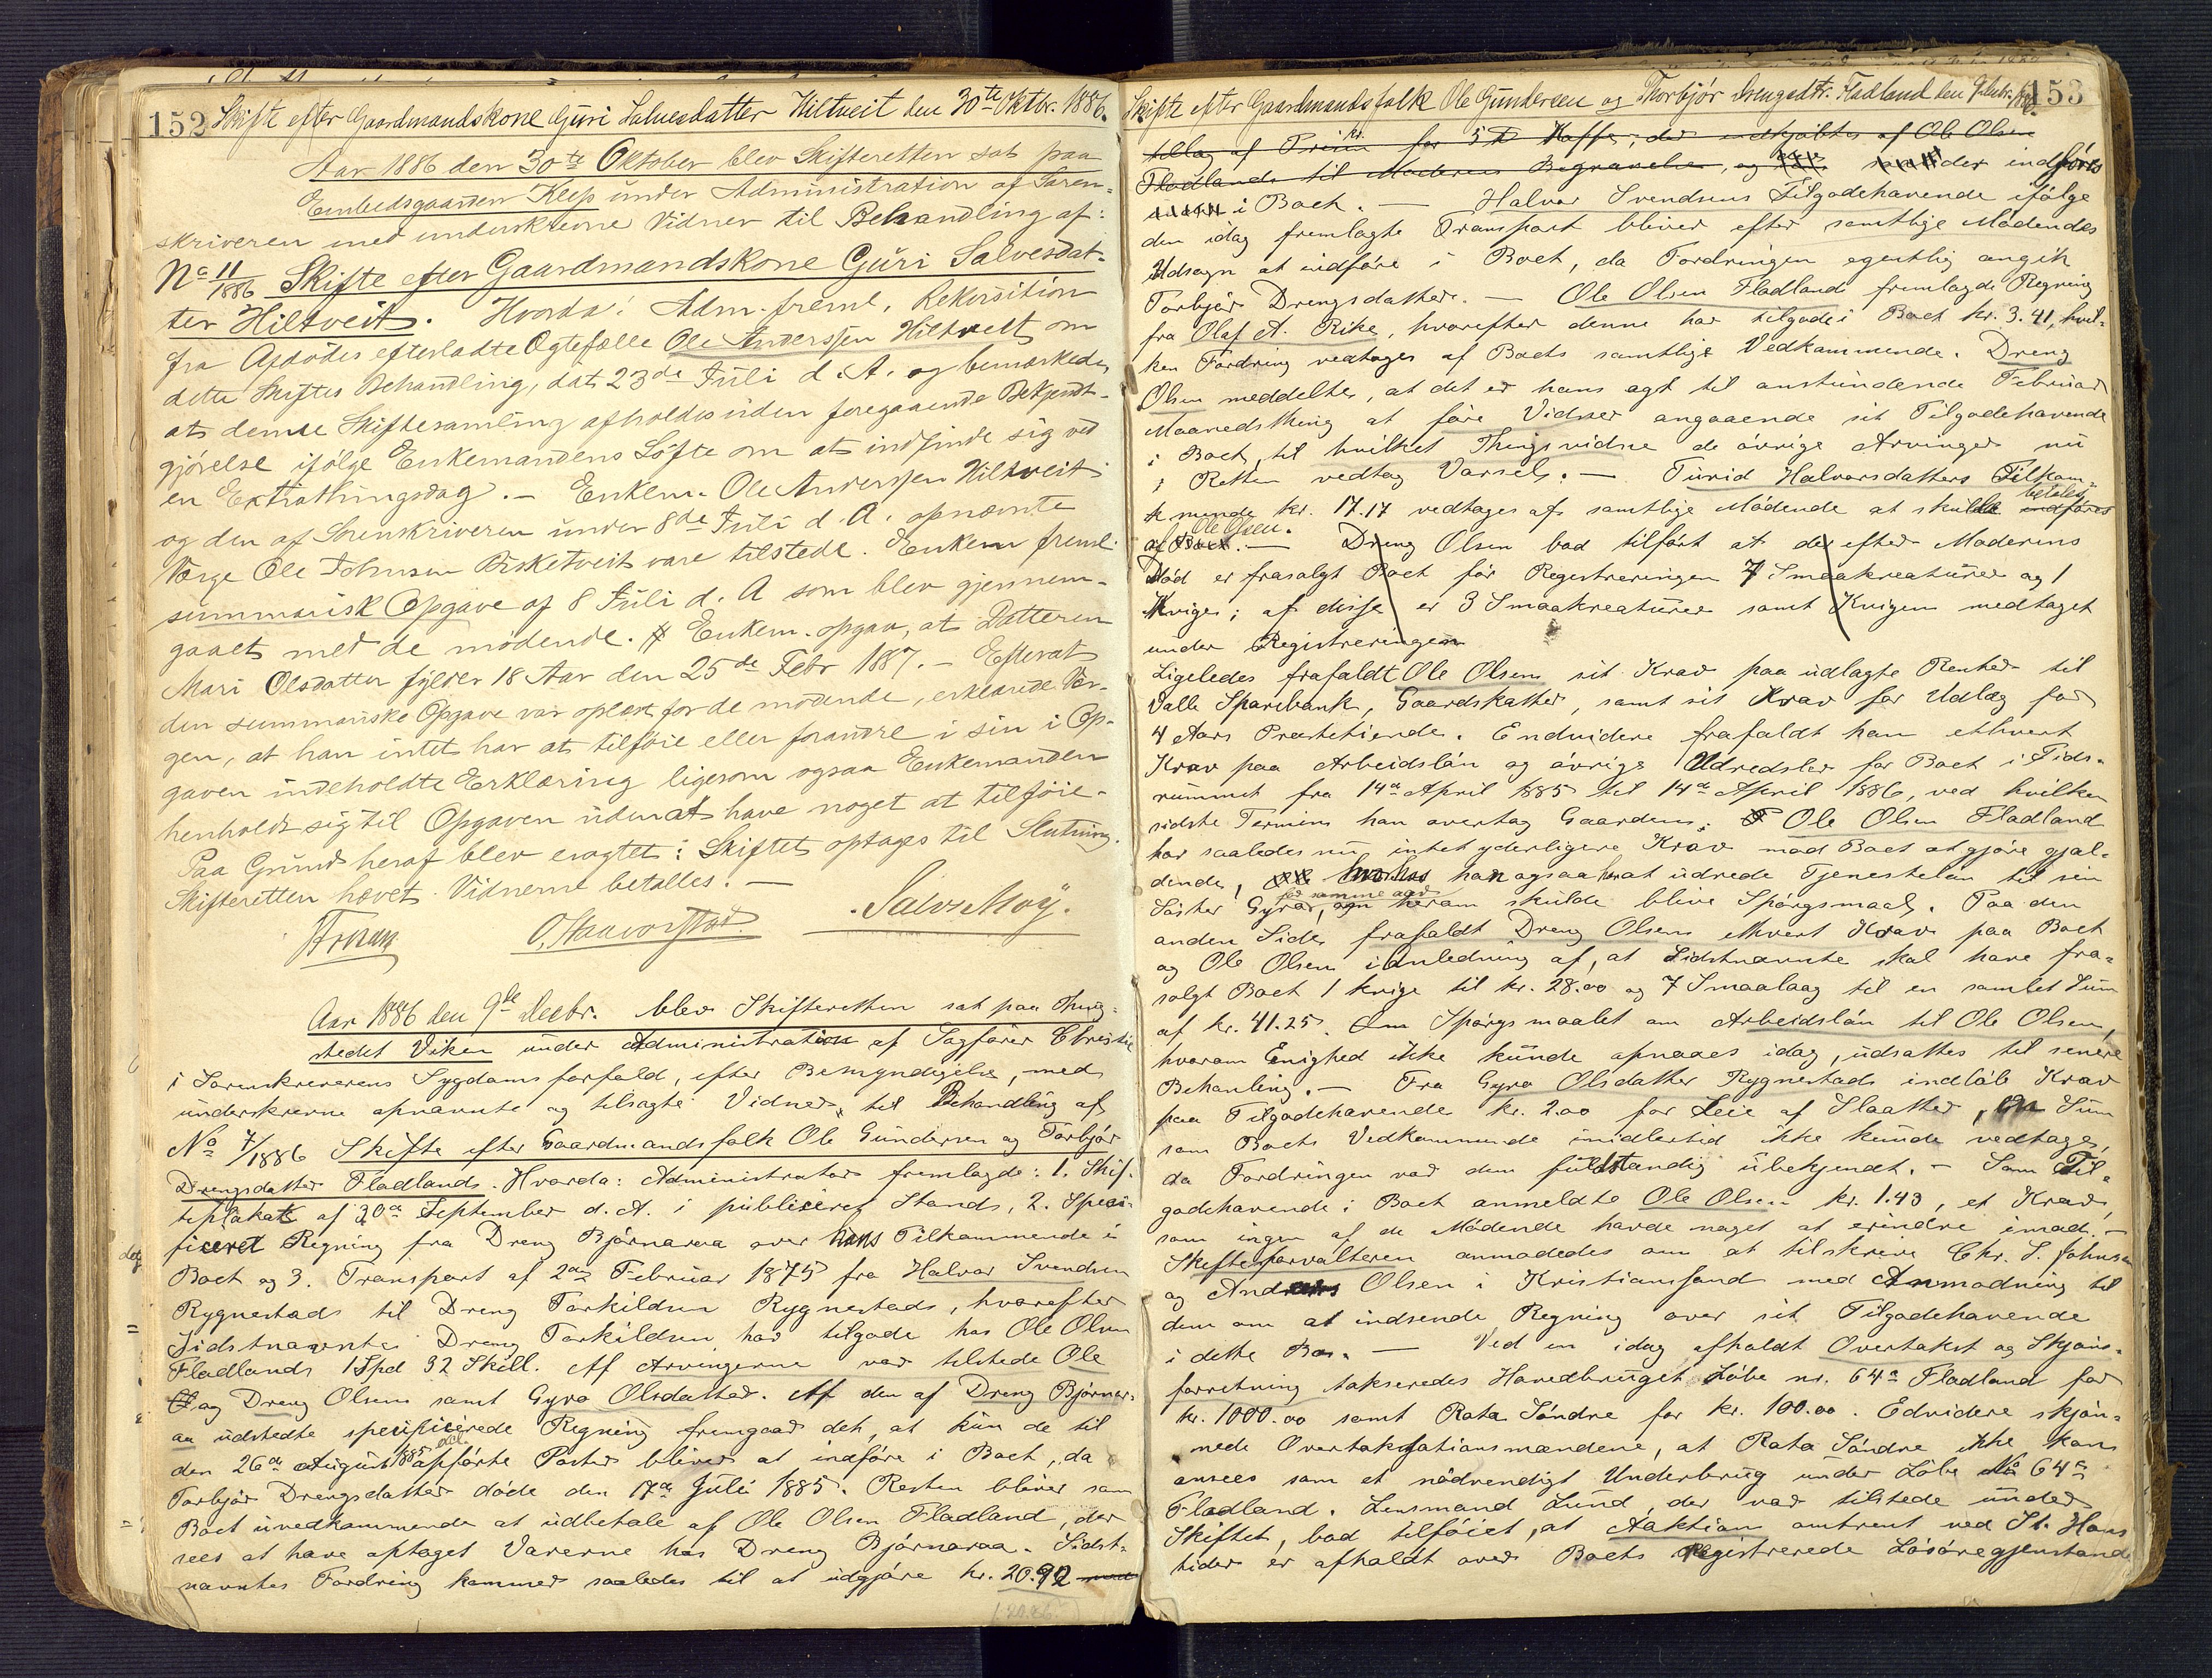 152 Skifte efter Gaardmandskone Guri Salvesdatter Hiltveit den 30te Oktbr. 1886.
Aar 1886 den 30te Oktober blev Skifteretten sat paa
Embedsgaarden Klep under Administration af Soren-
skriveren med underskrevne Vidner til Behandling af:
No 11/1886 Skifte efter Gaardmandskone Guri Salvesdat-
ter Hiltveit. Hvorda: Adm. freml. Rekvisition
fra Afdødes efterladte Ægtefælle Ole Anderssen Hiltveit om
dette Skiftes Behandling, dat. 23de Juli d. A. og bemærkedes
at denne Skiftesamling afholdes uden foregaaende Bekjendt-
gjørelse ifølge Enkemandens Løfte om at indfinde sig ved
en Extrathingsdag. – Enkem. Ole Anderssen Hiltveit
og den af Sorenskriveren under 8de Juli d. A. opnævnte
Værge Ole Johnsen Risketveit vare tilstede. Enkem freml.
summarisk Opgave af 8 Juli d. A som blev gjennem-
gaaet med de mødende. Enkem. opgav, at Datteren
Mari Olsdatter fylder 18 Aar den 25de Febr 1887. – Efterat
den summariske Opgave var oplæst for de mødende, erklærede Vær-
gen, at han intet har at tilføie eller forandre i sin i Op-
gaven indeholdte Erklæring ligesom ogsaa Enkemanden
henholdt sig til Opgaven uden at have noget at tilføie.
Paa Grund heraf blev eragtet: Skiftet optages til Slutning.
Skifteretten hævet. Vidnerne betaltes. –
O. Haavorstad. Salve Moÿ.
Aar 1886 den 9de Decbr. blev Skifteretten sat paa Thing-
stedet Viken under Administration af Sagfører Christie
i Sorenskriverens Sygdomsforfald, efter Bemyndigelse, med
underskrevne opnævnte og tilsagte Vidner, til Behandling af
No 7/1886 Skifte efter Gaardmandsfolk Ole Gundersen og Torbjør
Drengsdatter Fladland. Hvorda: Administrator fremlagde: 1. Skif-
teplakat af 20de September d. A. i publiceret Stand, 2. Speci-
ficeret Regning fra Dreng Bjørnaraa over hans Tilkommende i
Boet og 3. Transport af 2den Februar 1875 fra Halvor Svendsen
Rygnestad til Dreng Torkildsen Rygnestad, hvorefter
Sidstnævnte Dreng Torkildsen har tilgode hos Ole Olsen
Fladland 1 Spd 32 Skill. Af Arvingerne var tilstede Ole
og Dreng Olsen samt Gyro Olsdatter. Af den af Dreng Bjørnar-
aa udstedte specificerede Regning fremgaar det, at kun de til
den 26de August 1885 opførte Poster bliver at indføre i Boet, da
Torbjør Drengsdatter døde den 17de Juli 1885. Resten bliver som
Boet uvedkommende at udbetale af Ole Olsen Fladland, der
sees at have optaget Varerne hos Dreng Bjørnaraa. Sidst-
nævntes Fordring kommer saaledes til at udgjøre kr. 20.92 med
Skifte efter Gaardmandsfolk Ole Gundersen og Thorbjør Drengsdtr. Fladland den 9 Decbr. 153
tillæg af Prisen for 5 ℔ Kaffe, der indkjøbtes af Ole Olsen
Fladland til Moderens Begravelse, og der indføres
i Boet. – Halvor Svendsens Tilgodehavende ifølge
den idag fremlagte Transport bliver efter samtlige Mødendes
Udsagn at indføre i Boet, da Fordringen egentlig angik
Torbjør Drengsdatter. – Ole Olsen Fladland fremlagde Regning
fra Olaf A. Rike, hvorefter denne har tilgode i Boet kr. 3.41, hvil-
ken Fordring vedtages af Boets samtlige Vedkommende. Dreng
Olsen meddelte, at det er hans agt til anstundende Februar
Maanedsthing at føre Vidner angaaende sit Tilgodehavende
i Boet, til hvilket Thingsvidne de øvrige Arvinger nu
i Retten vedtog Varsel. – Turid Halvorsdatters Tilkom-
mende kr. 17.17 vedtages af samtlige Mødende at skulle indføres betales
af Boet Ole Olsen. – Dreng Olsen bad tilført at der efter Moderens
Død er frasolgt Boet før Registreringen 7 Smaakreaturer og 1
Kvige; af disse er 3 Smaakreaturer samt Kvigen medtaget
under Registreringen
Ligeledes frafaldt Ole Olsen sit Krav paa udlagte Renter til
Valle Sparebank, Gaardskatter, samt sit Krav for Udlæg for
4 Aars Præstetiende. Endvidere frafaldt han ethvert
Krav paa Arbeidsløn og øvrige Udredsler for Boet i Tids-
rummet fra 14de April 1885 til 14de April 1886, ved hvilken
sidste Termin han overtog Gaarden. Ole Olsen Fladland
har saaledes nu intet yderligere Krav mod Boet at gjøre gjæl-
dende, han ogsaa har at udrede Tjenesteløn til sin
Søster Gyro for samme aar, om herom skulde blive Spørgsmaal. Paa den
anden Side frafaldt Dreng Olsen ethvert Krav paa Boet
og Ole Olsen i Anledning af, at Sidstnævnte skal have fra-
solgt Boet 1 kvige til kr. 28.00 og 7 Smaalaag til en samlet Sum
af kr. 41.25. Om Spørgsmaalet om Arbeidsløn til Ole Olsen,
hvorom Enighed ikke kunde opnaaes idag, udsattes til senere
Behanling. – Fra Gyro Olsdatter Rygnestad indløb Krav
paa Tilgodehavende kr. 2.00 for Leie af Slaatter, en Sum
som Boets Vedkommende imidlertid ikke kunde vedtage,
da Fordringen var dem fuldstændig ubekjendt. – Som Til-
godehavende i Boet anmeldte Ole Olsen kr. 1.43, et Krav,
som ingen af de Mødende havde noget at erindre imod. –
Skifteforvalteren anmodedes om at tilskrive Chr. S. Johnsen
og Andreas Olsen i Kristiansand med Anmodning til
dem om at indsende Regning over sit Tilgodehavende
i dette Bo. – Ved en idag afholdt Overtakst og Skjøns-
forretning takseredes Hovedbruget Løbe nr. 64a Fladland for
kr. 1000.00 samt Rota Søndre for kr. 100.00. Edvidere skjøn-
nede Overtaksationsmændene, at Rota Søndre ikke kan
ansees som et nødvendigt Underbrug under Løbe No 64a
Fladland. Lensmand Lund, der var tilstede under
Skiftet, bad tilføiet, at Auktion omtrent ved St. Hans
tider er afholdt over Boets Registrerede Løsøregjenstande